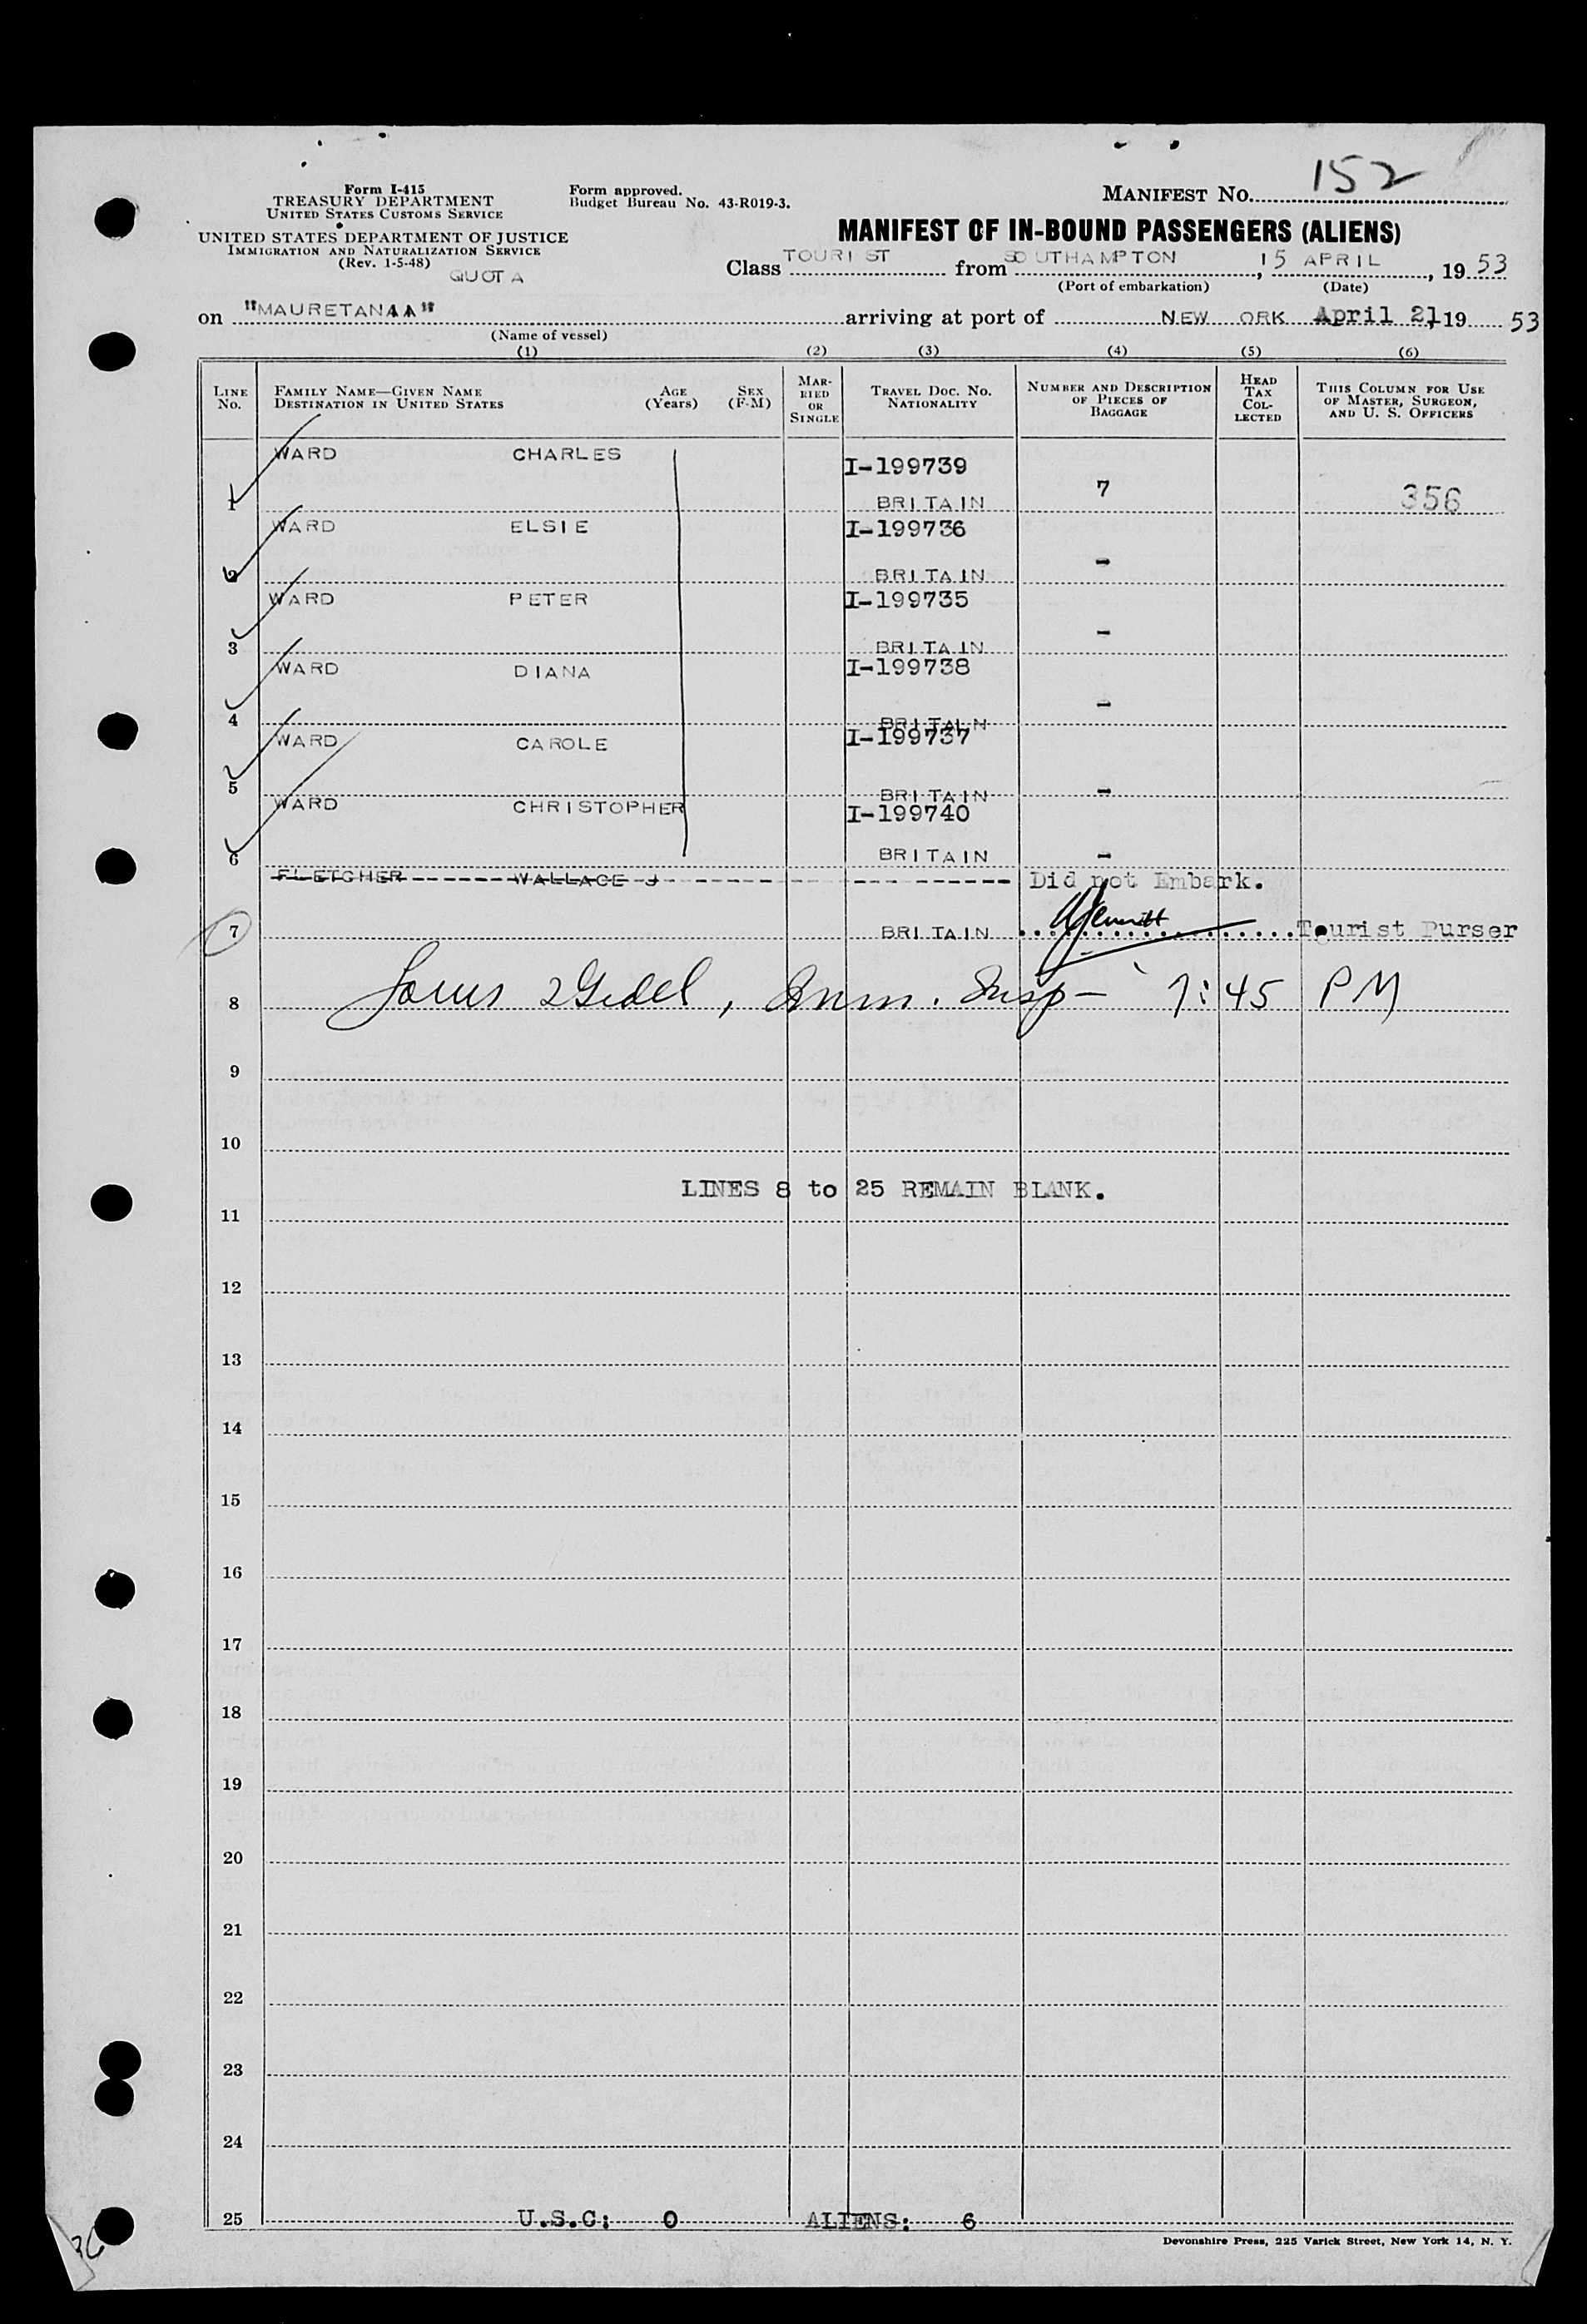 Form I-415
TREASURY DEPARTMENT
UNITED STATES CUSTOMS SERVICE
UNITED STATES DEPARTMENT OF JUSTICE
IMMIGRATION AND NATURALIZATION SERVICE
(Rev. 1-5-48)
QUOTA
Form approved.
Budget Bureau No. 43-R019-3.
MANIFEST No. 152
MANIFEST OF IN-BOUND PASSENGERS (ALIENS)
Class TOURIST from SOUTHAMPTON, 15 APRIL, 19 53
(Port of embarkation) (Date)
on "MAURETANIA" arriving at port of NEW ORK April 21 19 53
(Name of vessel)
(1) (2) (3) (4) (5) (6)
LINE No. FAMILY NAME—GIVEN NAME DESTINATION IN UNITED STATES AGE (Years) SEX (F-M) MARRIED OR SINGLE TRAVEL DOC. NO. NATIONALITY NUMBER AND DESCRIPTION OF PIECES OF BAGGAGE HEAD TAX COLLECTED THIS COLUMN FOR USE OF MASTER, SURGEON, AND U. S. OFFICERS
WARD CHARLES I-199739
1 BRITAIN 7 356
WARD ELSIE I-199736
2 BRITAIN -
WARD PETER I-199735
3 BRITAIN -
WARD DIANA I-199738
4 BRITAIN -
WARD CAROLE I-199737
5 BRITAIN -
WARD CHRISTOPHER I-199740
6 BRITAIN -
FLETCHER WALLACE J Did not Embark.
7 BRITAIN Tourist Purser
8 Imm. Insp - 7:45 PM
9
10
LINES 8 to 25 REMAIN BLANK.
11
12
13
14
15
16
17
18
19
20
21
22
23
24
25 U.S.C: 0 ALIENS: 6
Devonshire Press, 225 Varick Street, New York 14, N. Y.